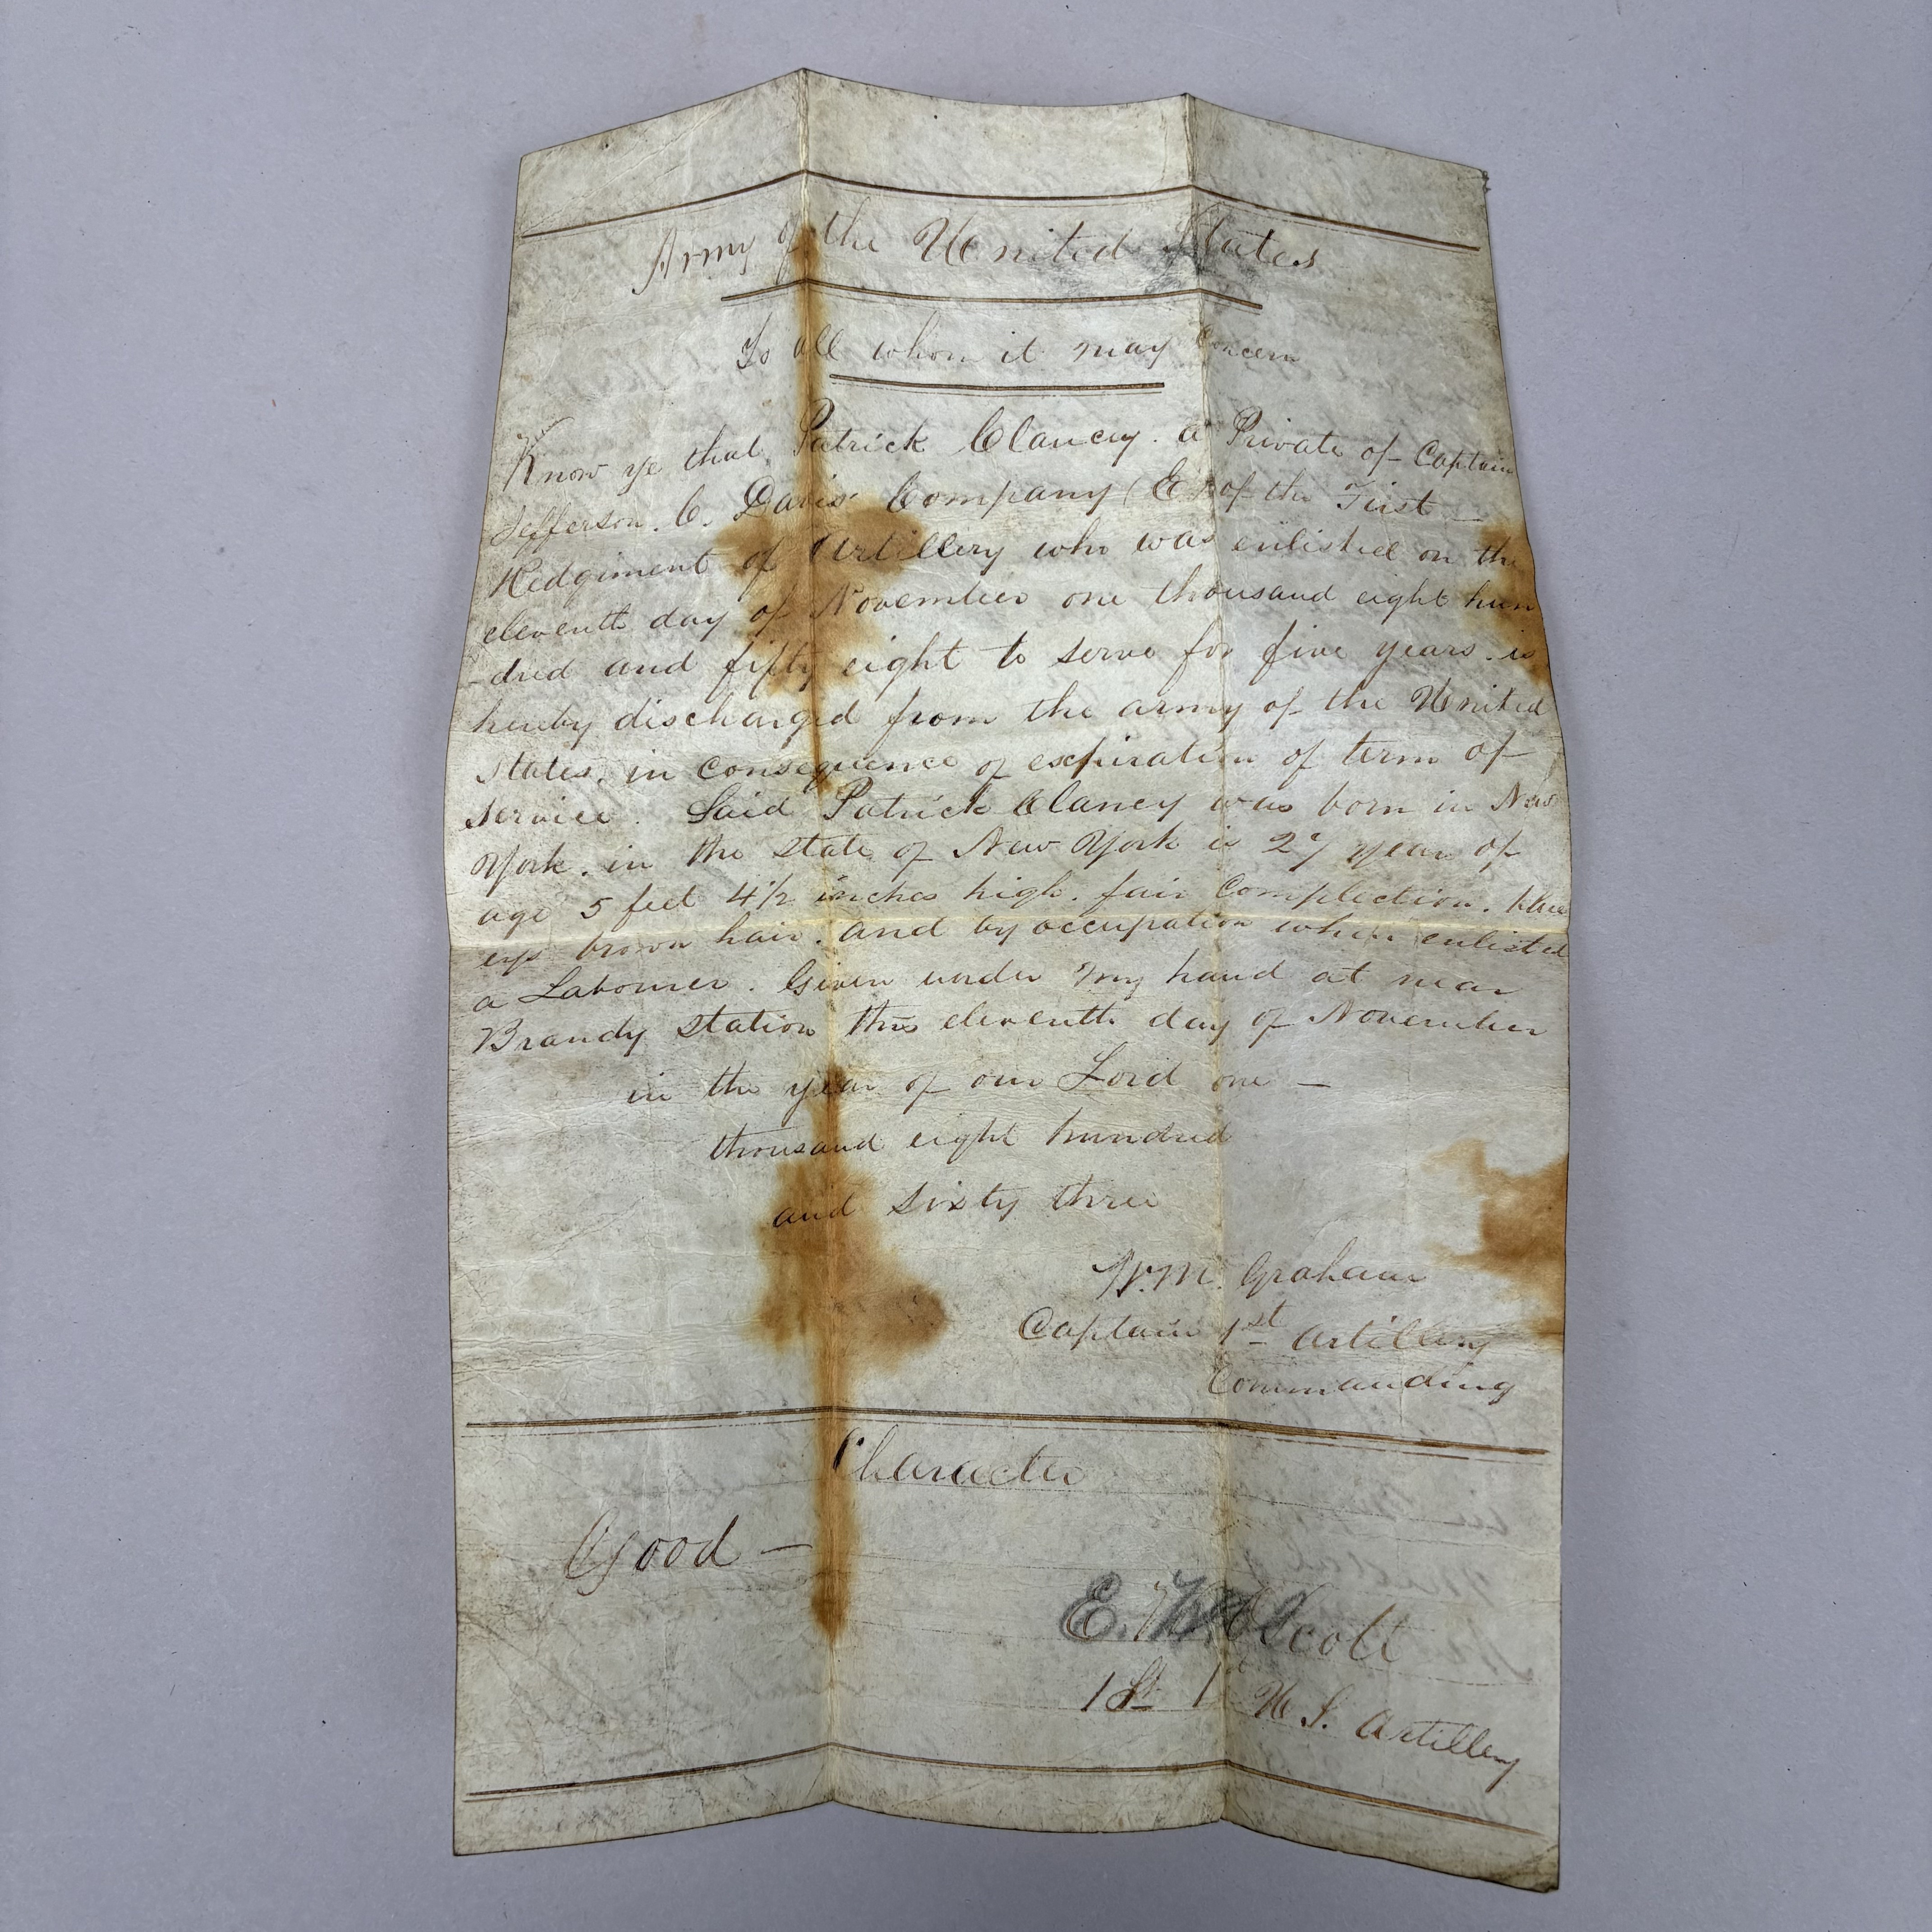 Army of the United States
To all whom it may Concern
Know ye that Patrick Clancy. a Private of Captain
Jefferson. C. Davis' Company (E) of the First —
Redgiment of Artillery who was enlisted on the
eleventh day of November one thousand eight hun
-dred and fifty eight to serve for five years. is
hereby discharged from the army of the United
States, in Consequence of expiration of term of
service. Said Patrick Clancy was born in New
York. in the state of New York is 27 year of
age 5 feet 4 1/2 inches high. fair Complection. blue
eys brown hair. and by occupation when enlisted
a Labourer. Given under my hand at near
Brandy Station this eleventh day of November
in the year of our Lord one —
thousand eight hundred
and sixty three
W. M. Graham
Captain 1st Artillery
Commanding
Character
Good —
E. Scott
1 Lt 1st U. S. Artillery